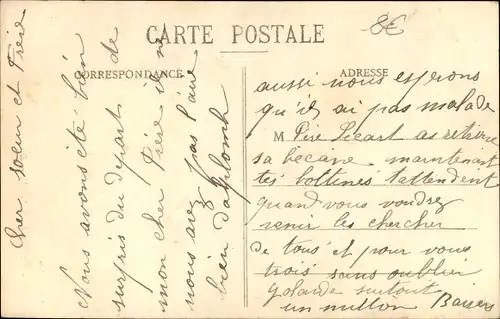 CARTE POSTALE
8€
CORRESPONDANCE
ADRESSE
Cher soeur et Frère
Nous avons été bien
surpris du départ de
mon cher Frère il ne
nous avez pas l'air
bien
aussi nous esperons
qu'il ai pas malade
M Père as retirer
sa becane maintenant
tes bottines t'attendent
quand vous voudrez
venir les chercher
de tous et pour vous
trois sans oublier
Yolande surtout
un million Baisers